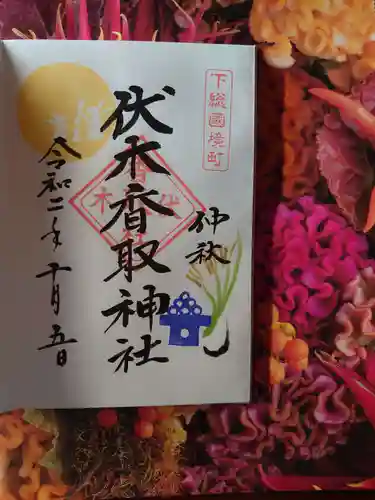 下総國境町
仲秋
伏木香取神社
令和二年十月五日